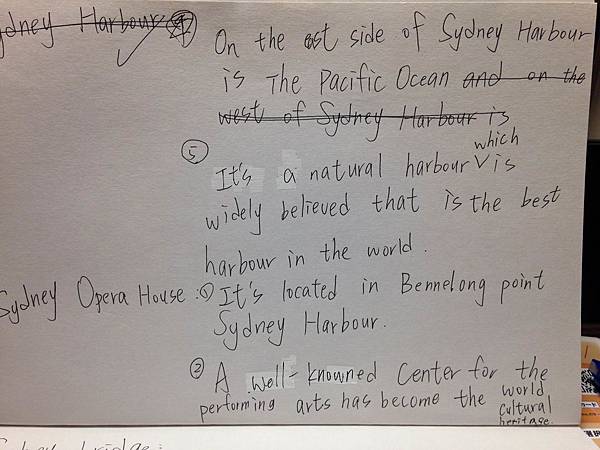 Sydney Harbour ④ On the east side of Sydney Harbour
is The Pacific Ocean and on the
west of Sydney Harbour is
⑤ It's a natural harbour which is
widely believed that is the best
harbour in the world.
Sydney Opera House: ① It's located in Bennelong point
Sydney Harbour.
② A well-knowned Center for the
performing arts has become the world
cultural
heritage.
Sydney bridge: